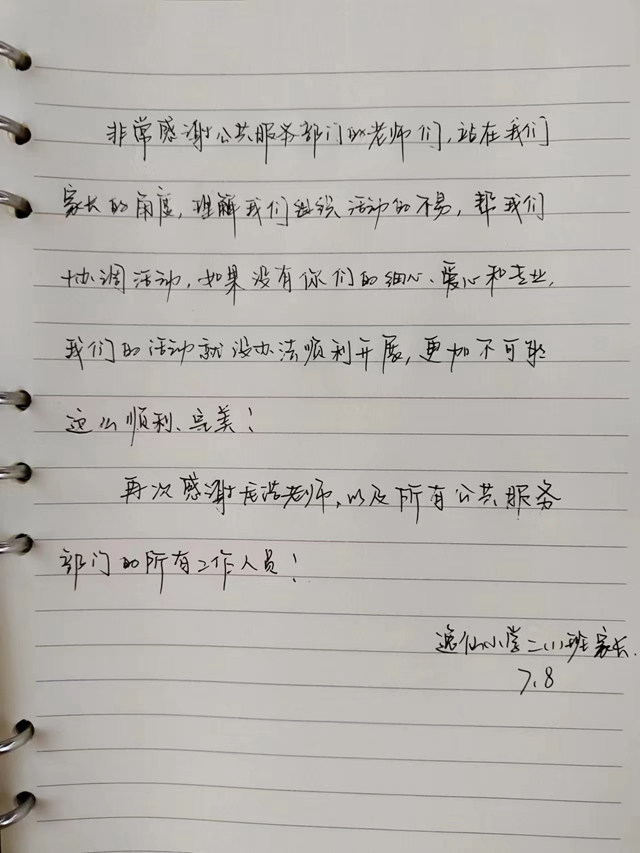 非常感谢公共服务部门的老师们，站在我们
家长的角度，理解我们组织活动的不易，帮我们
协调活动，如果没有你们的细心、爱心和专业，
我们的活动就没办法顺利开展，更加不可能
这么顺利、完美！
再次感谢浩老师，以及所有公共服务
部门的所有工作人员！
逸仙小学二（1）班家长.
7.8